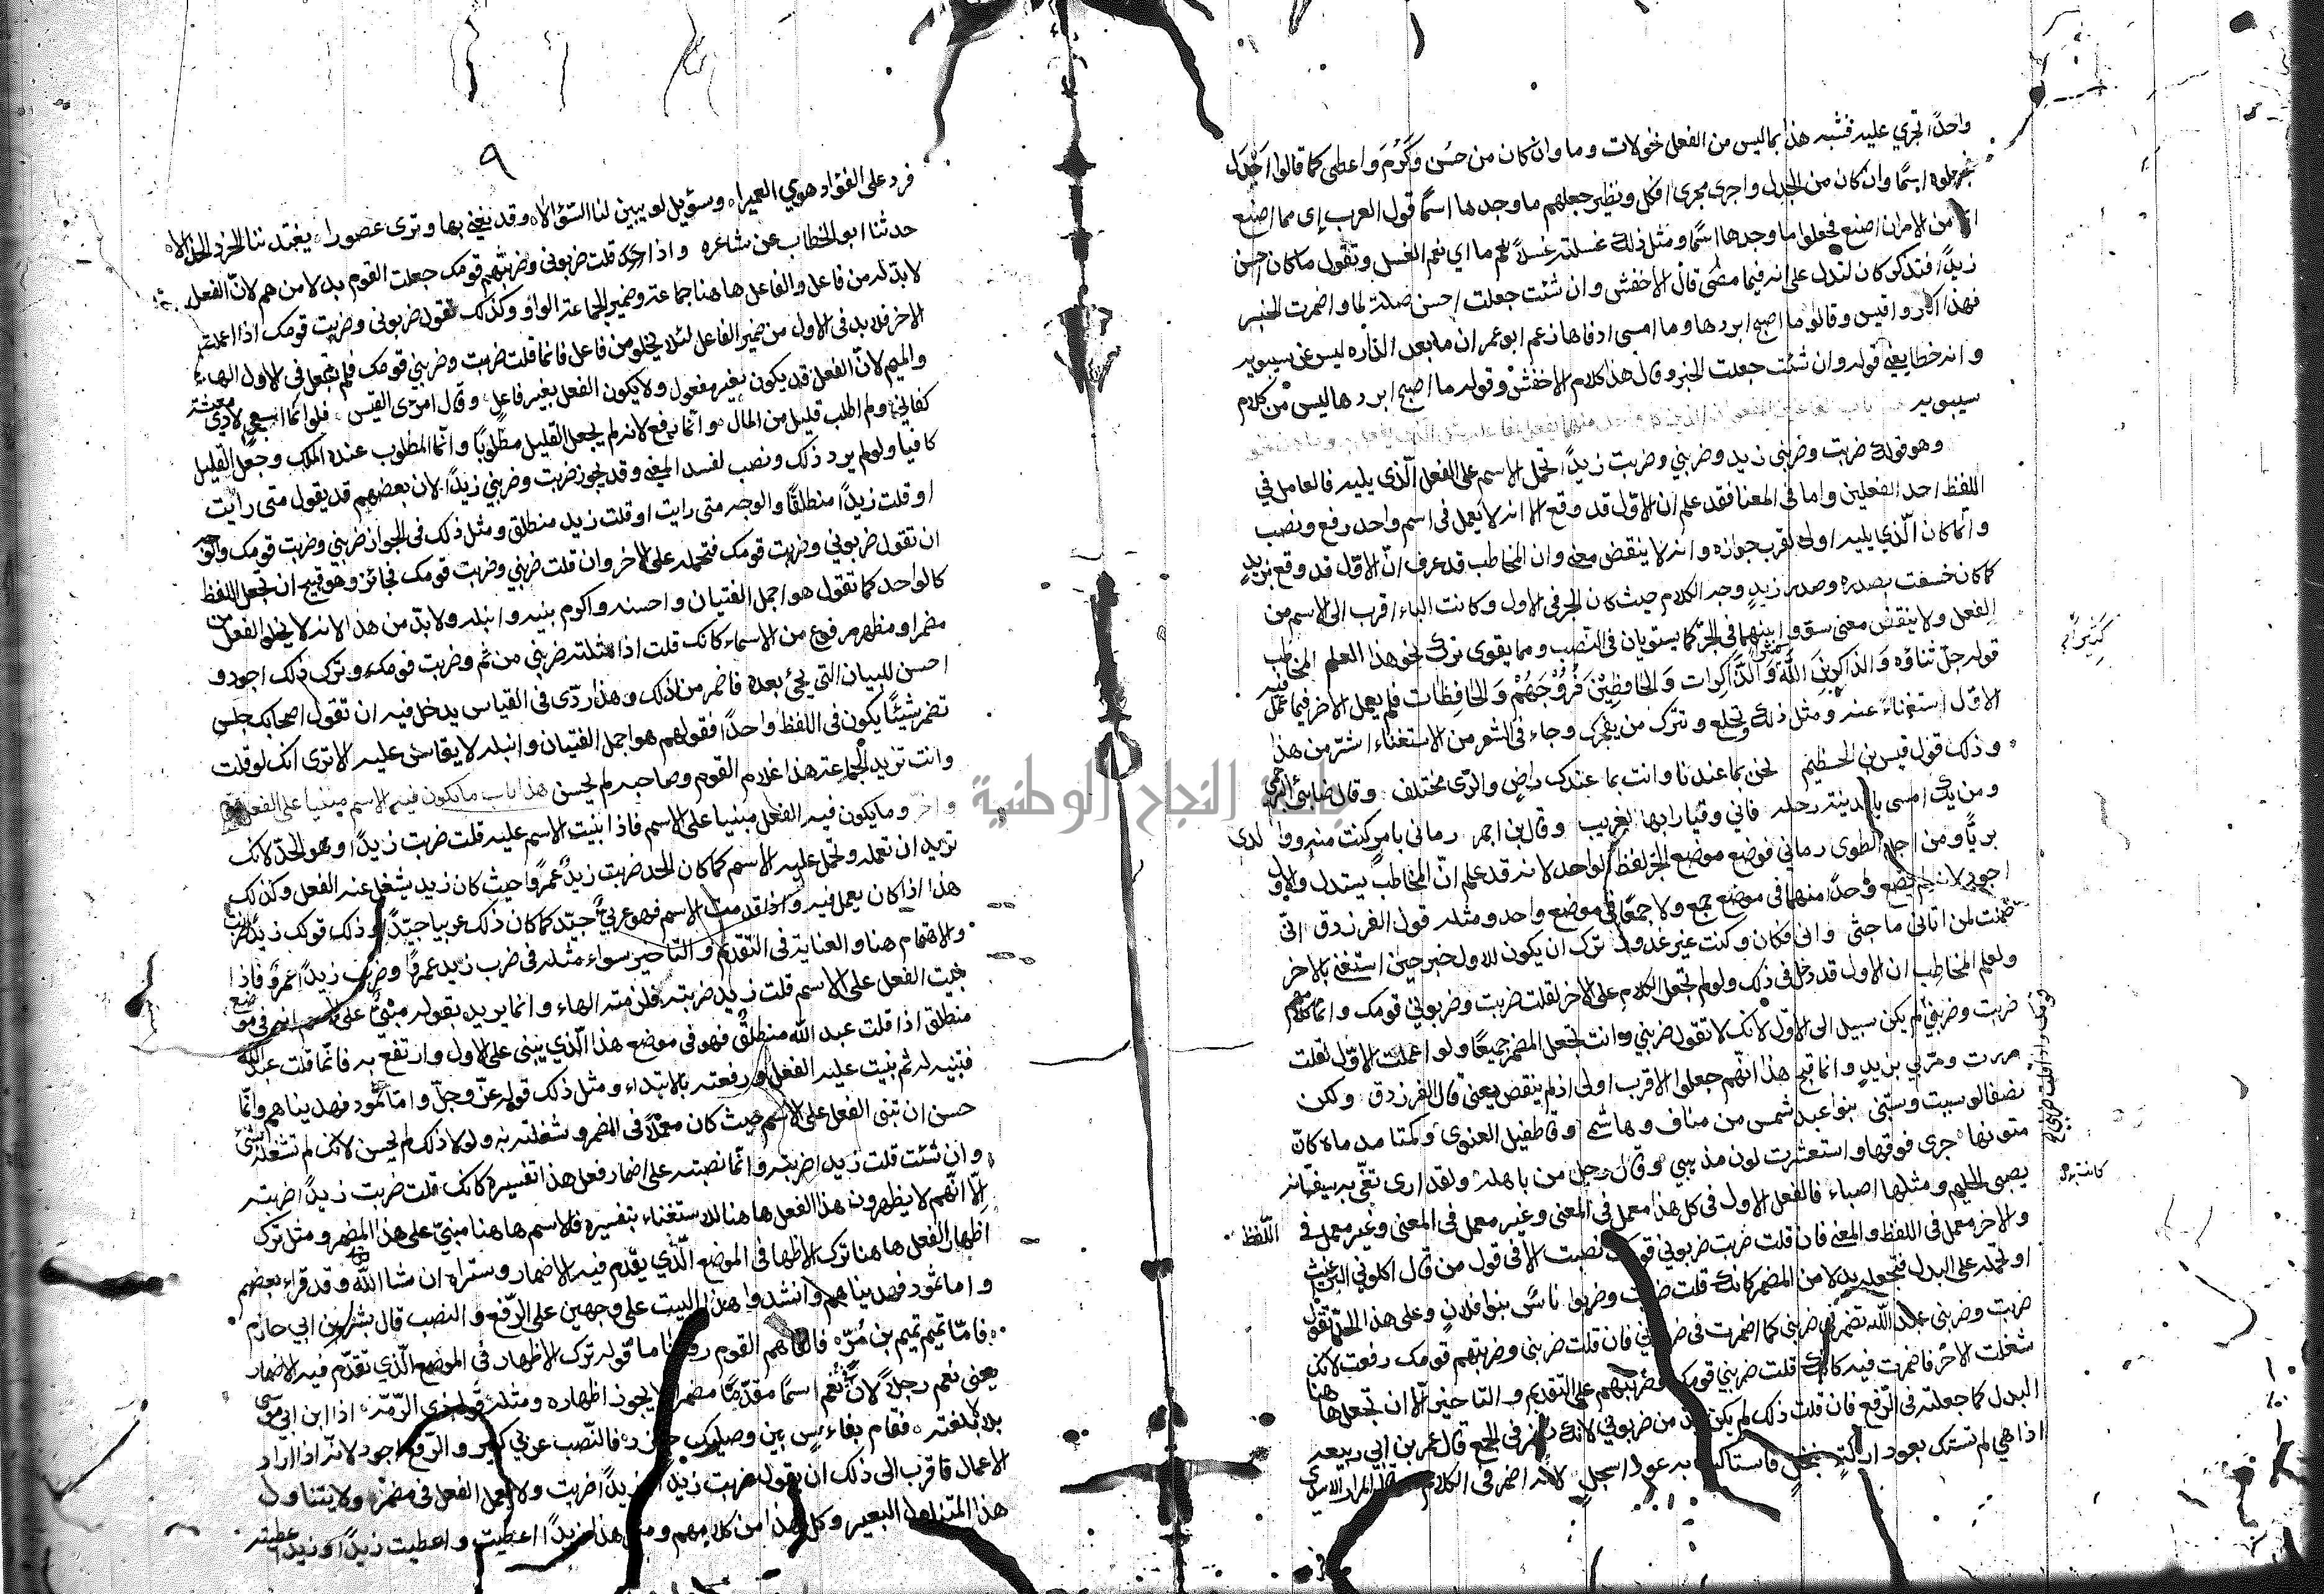 واحدًا تجري عليه فشبه هذا بما ليس من الفعل نحو لات وما وان كان من حسن وكرم واعطى كما قالوا اجدل
فجعلوه اسمًا وان كان من الجدل واجرى مجرى افكل ونظير جعلهم ما وحدها اسمًا قول العرب إني مما اصنع
اي من الامر ان اصنع فجعلوا ما وحدها اسمًا ومثل ذلك غسلته غسلاً نعم ما اي نعم الغسل وتقول ما كان احسن
زيدًا فتذكر كان لتدل على انه فيما مضى قال الاخفش وان شئت جعلت احسن صلة لما واضمرت الخبر
فهذا اكثر واقيس وقالوا ما اصبح ابردها وما امسى ادفاها زعم ابو عمر ان ما بعد الداره ليس عن سيبويه
وانه خطا يعني قوله وان شئت جعلت الخبر وقال هذا كلام الاخفش وقوله ما اصبح ابردها ليس من كلام
سيبويه
وهو قولك ضربت وضربني زيد وضربني وضربت زيدًا تحمل الاسم على الفعل الّذي يليه فالعامل في
اللفظ احد الفعلين واما في المعنا فقد علم ان الاوّل قد وقع الا انه لا يعمل في اسم واحد رفع ونصب
وانّما كان الّذي يليه اولى لقرب جوازه وانه لا ينقض معنى وان المخاطب قد عرف انّ الاوّل قد وقع بزيدٍ
كما كان خسفت بصدره وصدر زيدٍ وجه الكلام حيث كان الجر في الاول وكانت الباء اقرب الى الاسم من
الفعل ولا ينقض معنى سوّوا بينهما في الجرّ كما يستويان في النصب ومما يقوى ترك نحو هذا العلم المخاطب
قوله جلّ ثناؤه وَالذاكرينَ اللّهَ وَالذّاكِرات وَالحافظِينَ فُرُوْجَهُمْ وَالحافِظات فلم يعمل الاخر فيما عمل فيه
الاوّل استغناءً عنه ومثل ذلك ونخلع ونترك من يفجرك وجاء في الشعر من الاستغناء اشدّ من هذا
وذلك قول قيس بن الخطيم نحن بما عندنا وانت بما عندك راضٍ والرّى مختلف وقال ضابئ البرجمي
ومن يك امسى بالمدينة رحله فاني وقيّارا بها لغريب وقال ابن احمر رماني بامرٍ كنت منه ووالدى
بريًّا ومن اجل الطوى رماني فوضع موضع الخبر لفظ الواحد لانه قد علم انّ المخاطب يستدل والاول
اجود لانه لم يضع واحدًا منهما في موضع جمع ولا جمعًا في موضع واحد ومثله قول الفرزدق انّي
ضمنت لمن اتاني ما جنى واني فكان وكنت غير غدور ترك ان يكون للاول خبر حين استغنى بالاخر
ولعلم المخاطب ان الاول قد دخل في ذلك ولو لم تجعل الكلام على الاخر لقلت ضربت وضربوني قومك وانما كلامهم
ضربت وضربني لم يكن سبيل الى الاوّل لانك لا تقول ضربني وانت تجعل المضمر جميعًا ولو اعملت الاوّل لقلت
مررت ومرّ بي بزيدٍ وانما قبح هذا انّهم جعلوا الاقرب اولى اذ لم ينقض معنى قال الفرزدق ولكن
نصفا لو سببت وسبّني بنو عبد شمس من مناف وهاشم وقال طفيل الغنوى وكمتا مدماه كانّ
متونها جرى فوقها واستشعرت لون مذهبى وقال رجل من باهلة ولقد ارى تغنّى به سيفانة
يصبى الحليم ومثلها اصباء فالفعل الاول في كل هذا معمل في المعنى وغير معمل في المعنى وغير معمل في اللّفظ
والاخر معمل في اللفظ والمعنى فان قلت ضربت ضربوني قومك نصبت الا في قول من قال اكلوني البراغيث
او تحمله على البدل فتجعله بدلا من المضمر كانك قلت ضربت وضربوا ناسٌ بنو فلانٍ وعلى هذا الحدّ تقول
ضربت وضربنى عبد اللّه تضمر في ضربنى كما اضمرت في ضربوني فان قلت ضربنى وضربتهم قومك رفعت لانك
شغلت الاخر فاضمرت فيه كانك قلت ضربني قومك وضربتهم على التقديم والتاخير الّا ان تجعل ها هنا
البدل كما جعلته في الرّفع فان قلت ذلك لم يكن بد من ضربوني لانك تضمر في الجمع قال عمر بن ابي ربيعه
اذا هي لم تستك بعود اراكةٍ تنخل فاستاكت به عود اسحل لانه اضمر في الكلام وقال المرار الاسدى
كَذَبْرًا؟
قومك واذا قلت ضربني
كانت برد
٩
فرد على الفؤاد هوي العميدا وسؤيل لو يبين لنا السّؤالا وقد يغنى بها ونرى عصورا يقتدننا الخرد الخدالا
حدثنا ابو الخطاب عن شاعره واذا قلت ضربوني وضربتهم قومك جعلت القوم بدلا من هم لانّ الفعل
لابدّ له من فاعل والفاعل هاهنا جماعة وضمير الجماعة الواو وكذلك تقول ضربوني وضربت قومك اذا اعملت
الاخر فلا بد في الاول من ضمير الفاعل لئلا يخلو من فاعل فانما قلت ضربت وضربني قومك فلم تجعل في الاول الهاء
والميم لانّ الفعل قد يكون بغير مفعول ولا يكون الفعل بغير فاعل وقال امرؤ القيس فلو انّما اسعى لادنى معيشة
كفاني ولم اطلب قليل من المال وانّما رفع لانه لم يجعل القليل مطلوبًا وانّما المطلوب عنده الملك وجعل القليل
كافيا ولو لم يرد ذلك ونصب لفسد المعنى وقد يجوز ضربت وضربني زيدًا لان بعضهم قد يقول متى رايت
او قلت زيدًا منطلقًا والوجه متى رايت او قلت زيد منطلق ومثل ذلك في الجواز ضربني وضربت قومك والوجه
ان تقول ضربوني وضربت قومك فتحمله على الاخر وان قلت ضربني وضربت قومك فجائز وهو قبيح ان تجعل اللفظ
كالواحد كما تقول هو اجمل الفتيان واحسنه واكرم بنيه وانبله ولابدّ من هذا لانه لا يخلو الفعل من
مضمر او مظهر مرفوع من الاسماء كانك قلت اذا مثلته ضربني من ثم وضربت قومك وترك ذلك اجود و
احسن للبيان التي يجئ بعده فاضمر من لذلك وهذا ردّى في القياس يدخل فيه ان تقول اصحابك جلس
تضمر شيئًا يكون في اللفظ واحدًا فقولهم هو اجمل الفتيان وانبله لا يقاس عليه الا ترى انك لو قلت
وانت تريد الجماعة هذا غلام القوم وصاحبه لم يحسن هذا باب ما يكون فيه الاسم مبنيا على الفعل
وما يكون فيه الفعل مبنيا على الاسم فاذا بنيت الاسم عليه قلت ضربت زيدًا وهو الحدّ لانك
تريد ان تعمله وتحمل عليه الاسم كما كان الحد ضرب زيدٌ عمرًوا حيث كان زيد يشغل عنه الفعل وكذلك
هذا اذا كان يعمل فيه واذا قدمت الاسم فهو عربيٌّ جيّد كما كان ذلك عربيا جيّدًا وذلك قولك زيدًا ضربت
والاهتمام هنا والعناية في التقديم والتاخير سواء مثله في ضرب زيد عمرًوا وضرب زيدًا عمرٌو فاذا
بنيت الفعل على الاسم قلت زيد ضربته فلزمته الهاء وانما يريد بقوله مبنيٌّ على الاسم انه في موضع
منطلق اذا قلت عبد اللّه منطلقٌ فهو في موضع هذا الّذي يبنى على الاول وارتفع به فانّما قلت عبد اللّه
فتبنيه له ثم بنيت عليه الفعل ورفعته بالابتداء ومثل ذلك قوله عزّ وجلّ وامّا ثمود فهديناهم وانّما
حسن ان تبنى الفعل على الاسم حيث كان معملًا في المضمر وشغلته به ولولا ذلك لم يحسن لانك لم تشغله بشئ
وان شئت قلت زيدًا ضربته وانّما نصبته على اضمار فعل هذا تفسيره كانك قلت ضربت زيدًا ضربته
الا انّهم لا يظهرون هذا الفعل ها هنا للاستغناء بتفسيره فالاسم ها هنا مبنيّ على هذا المضمر ومثل ترك
اظهار الفعل ها هنا ترك الاظهار في الموضع الّذي يقدّم فيه الاضمار وستراه ان شا اللّه وقد قراء بعضهم
واما ثمود فهديناهم وانشدوا هذا البيت على وجهين على الرّفع والنصب قال بشر بن ابي حازم
فامّا تميم تميم بن مُرّه فالفاهم القوم روبى نياما قوله ترك الاظهار في الموضع الّذي تقدّم فيه الاضمار
يعنى نعم رجلًا لانّ نعم اسمًا مقدّمًا مضمرا لا يجوز اظهاره ومثله قول ذي الرّمّة اذا ابن ابي موسى
بلالا بلغته فقام بفاءس بين وصليك جازر فالنّصب عربي كثير والرّفع اجود لانّه اذا اراد
الاعمال فاقرب الى ذلك ان يقول ضربت زيدًا وزيدًا ضربت ولا يعمل الفعل في مضمر ولا يتناول
هذا المتناول البعيد وكل هذا من كلامهم ومثل هذا زيدًا اعطيت واعطيت زيدًا وزيدًا اعطيته
جامعة النجاح الوطنية